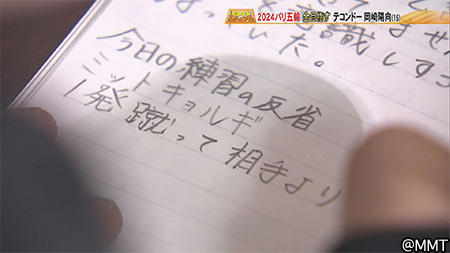 2024パリ五輪 金目指す テコンドー 岡崎陽向(15)
意識しすぎ
いた。
今日の練習の反省
ミットキョルギ
1発蹴って相手より
@MMT